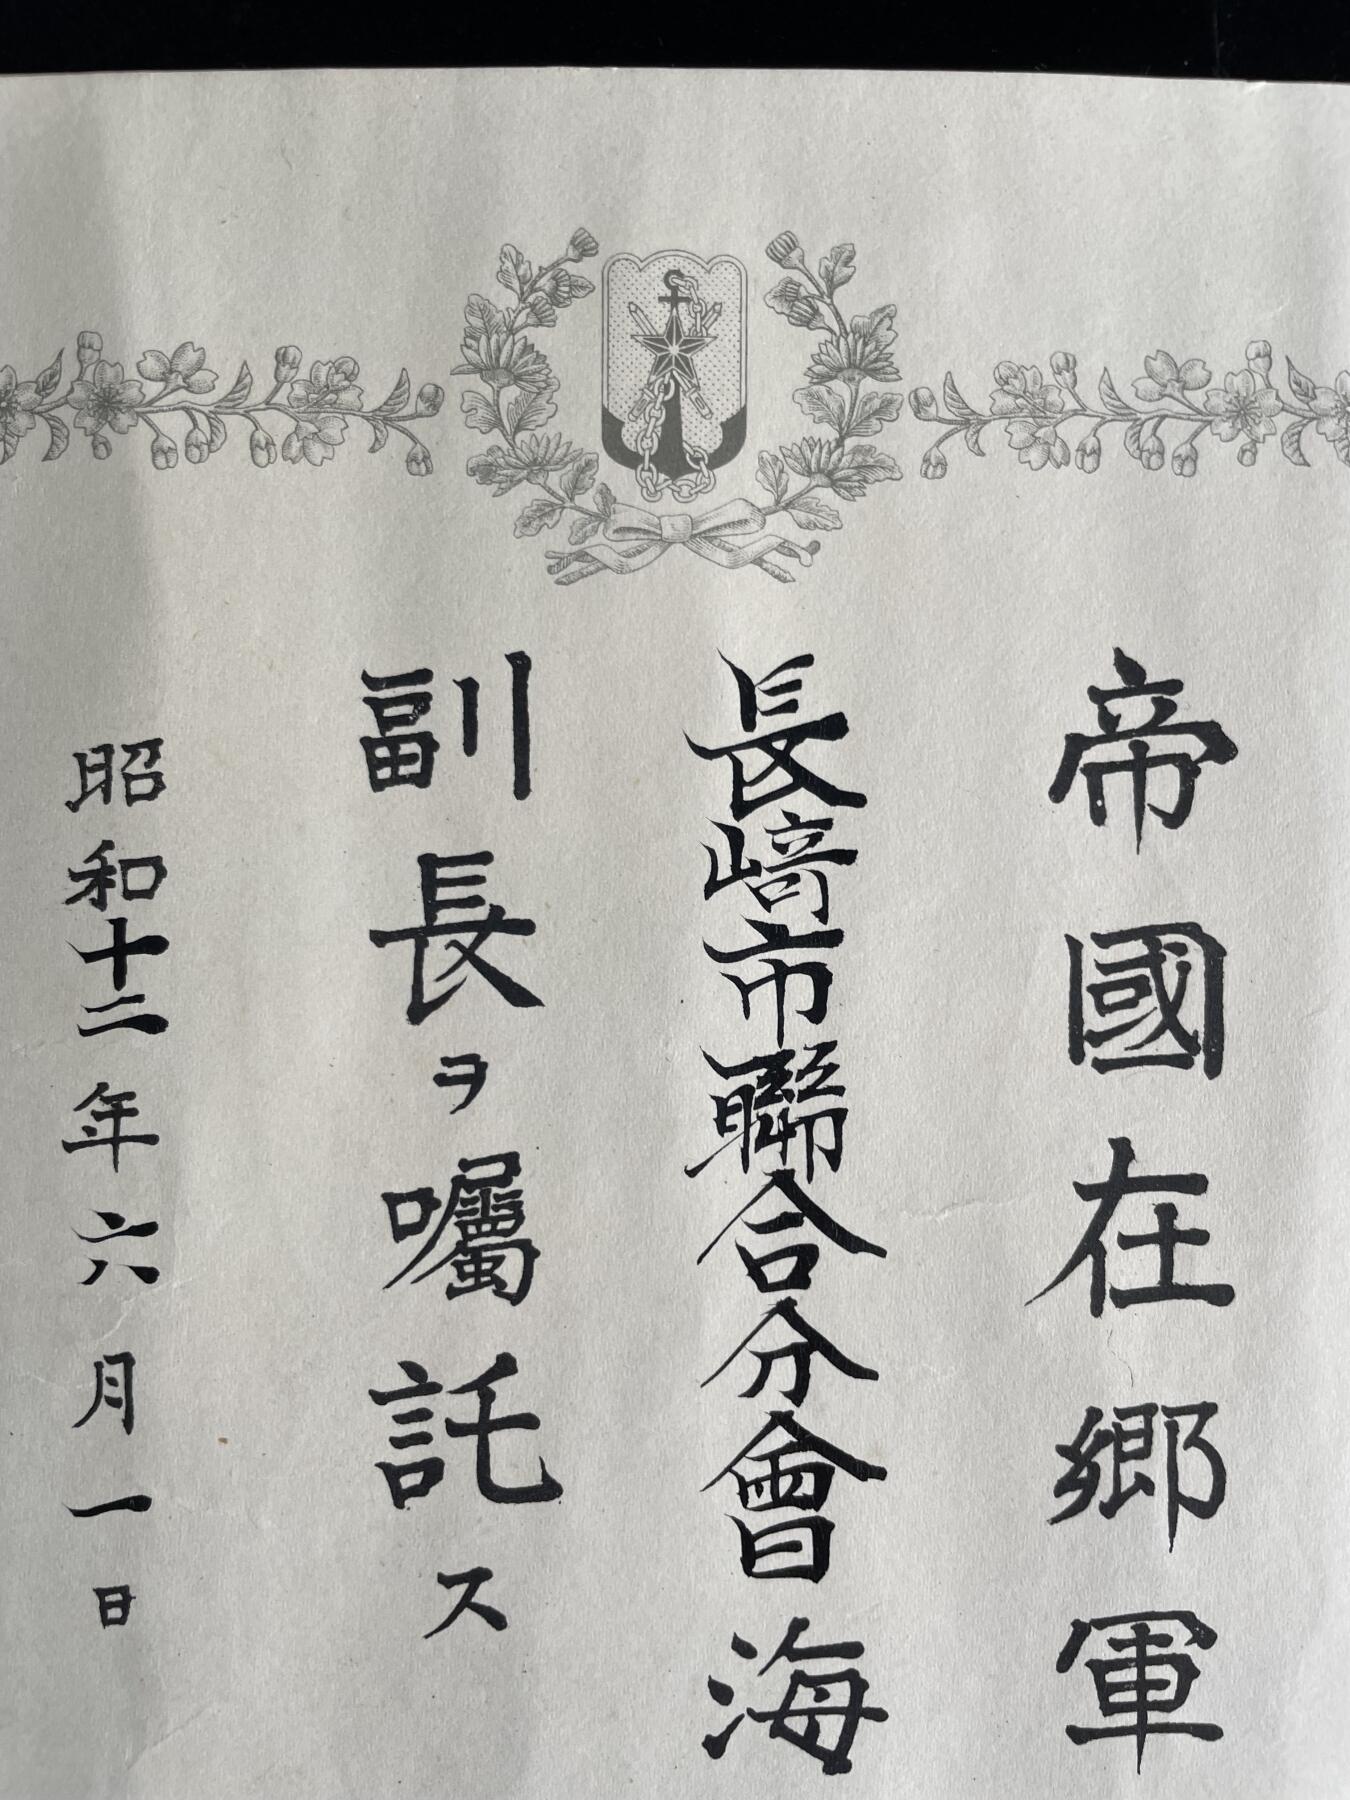 帝國在郷軍
長﨑市聯合分會海
副長ヲ囑託ス
昭和十二年六月一日